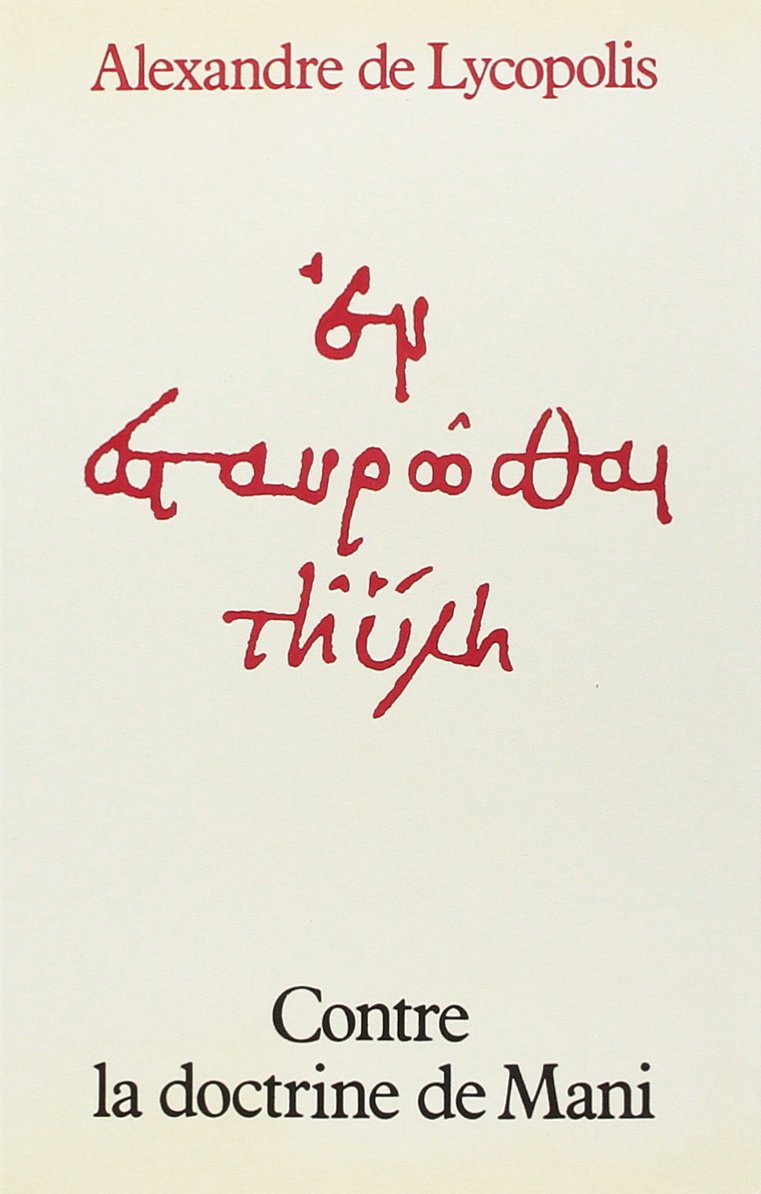 Alexandre de Lycopolis
ἐν
εσταυρῶσθαι
τῆ ὕλη
Contre
la doctrine de Mani